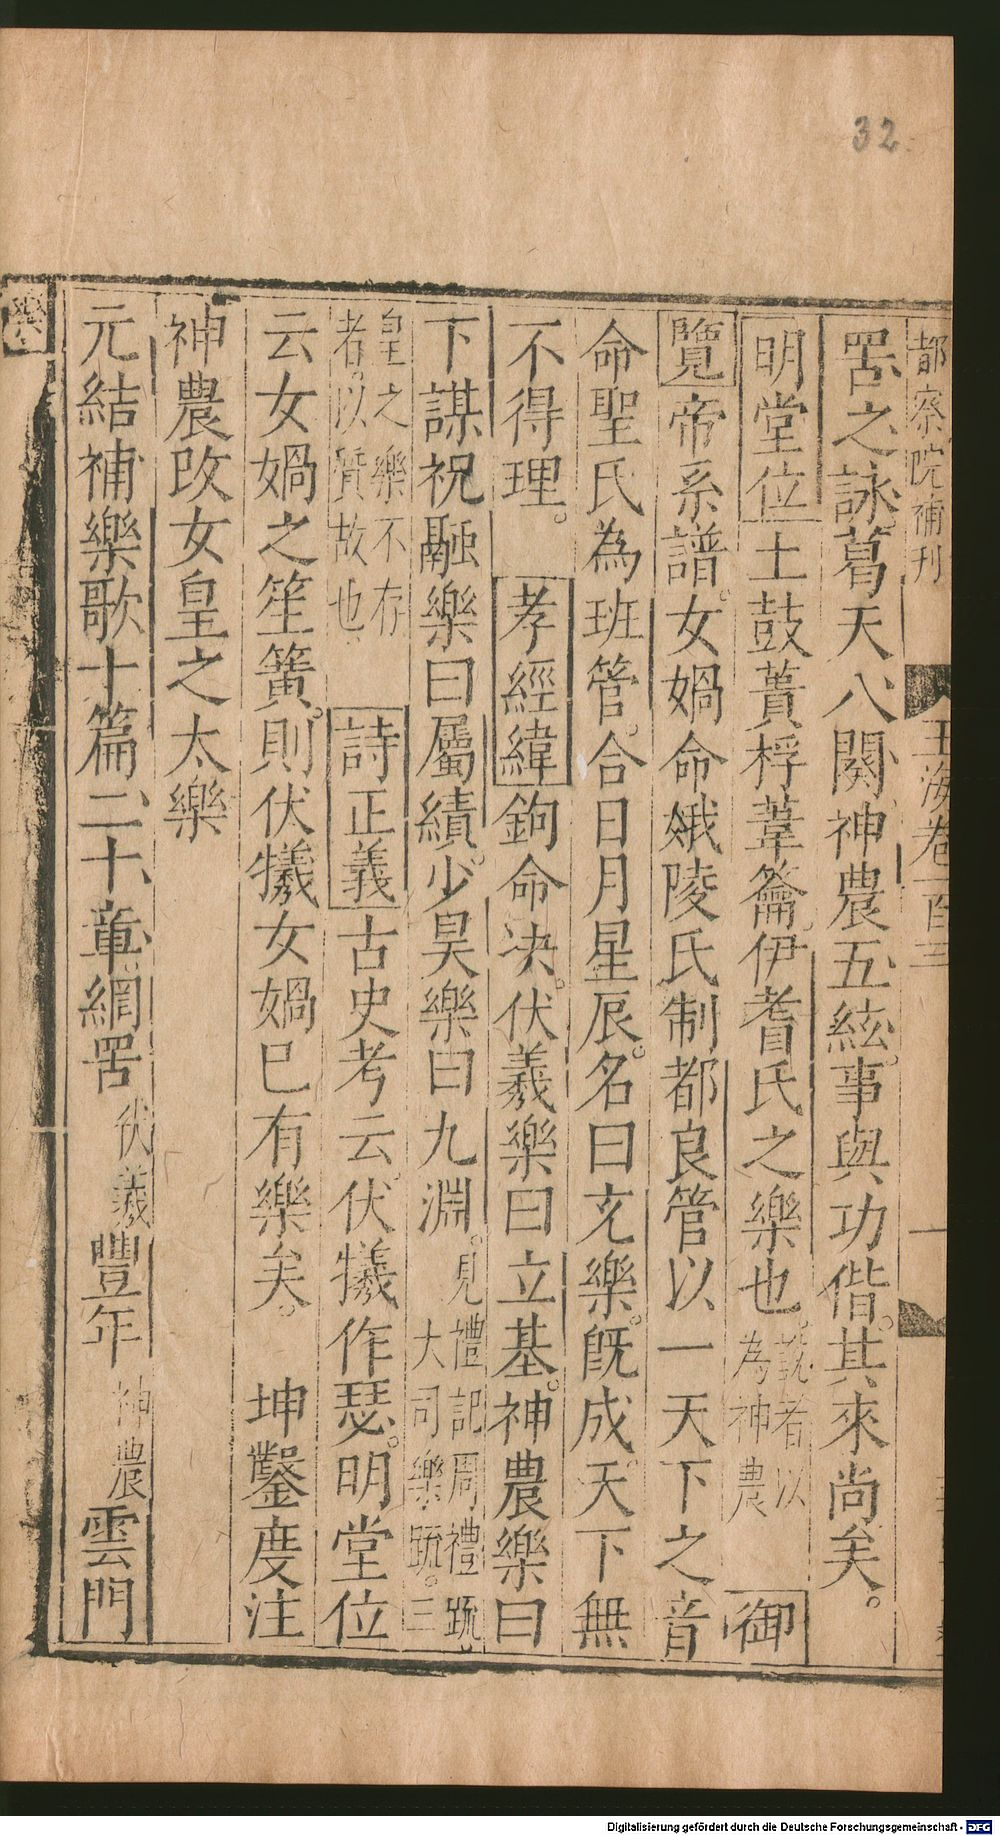 32
都察院補刊
玉海卷一百三
一
罟之詠葛天八闋神農五絃事與功偕其來尚矣。
明堂位土鼓蕢桴葦籥伊耆氏之樂也。說者以為神農 御
覽帝系譜女媧命娥陵氏制都良管以一天下之音
命聖氏為班管合日月星辰名曰充樂旣成天下無
不得理。 孝經緯鉤命决伏羲樂曰立基神農樂曰
下謀祝融樂曰屬績少昊樂曰九淵見禮記周禮䟽大司樂䟽三
皇之樂不存者以質故也 詩正義古史考云伏犧作瑟明堂位
云女媧之笙簧則伏犧女媧巳有樂矣。 坤鑿度注
神農改女皇之太樂
元結補樂歌十篇二十章網罟伏羲豐年神農雲門
樂
Digitalisierung gefördert durch die Deutsche Forschungsgemeinschaft - DFG